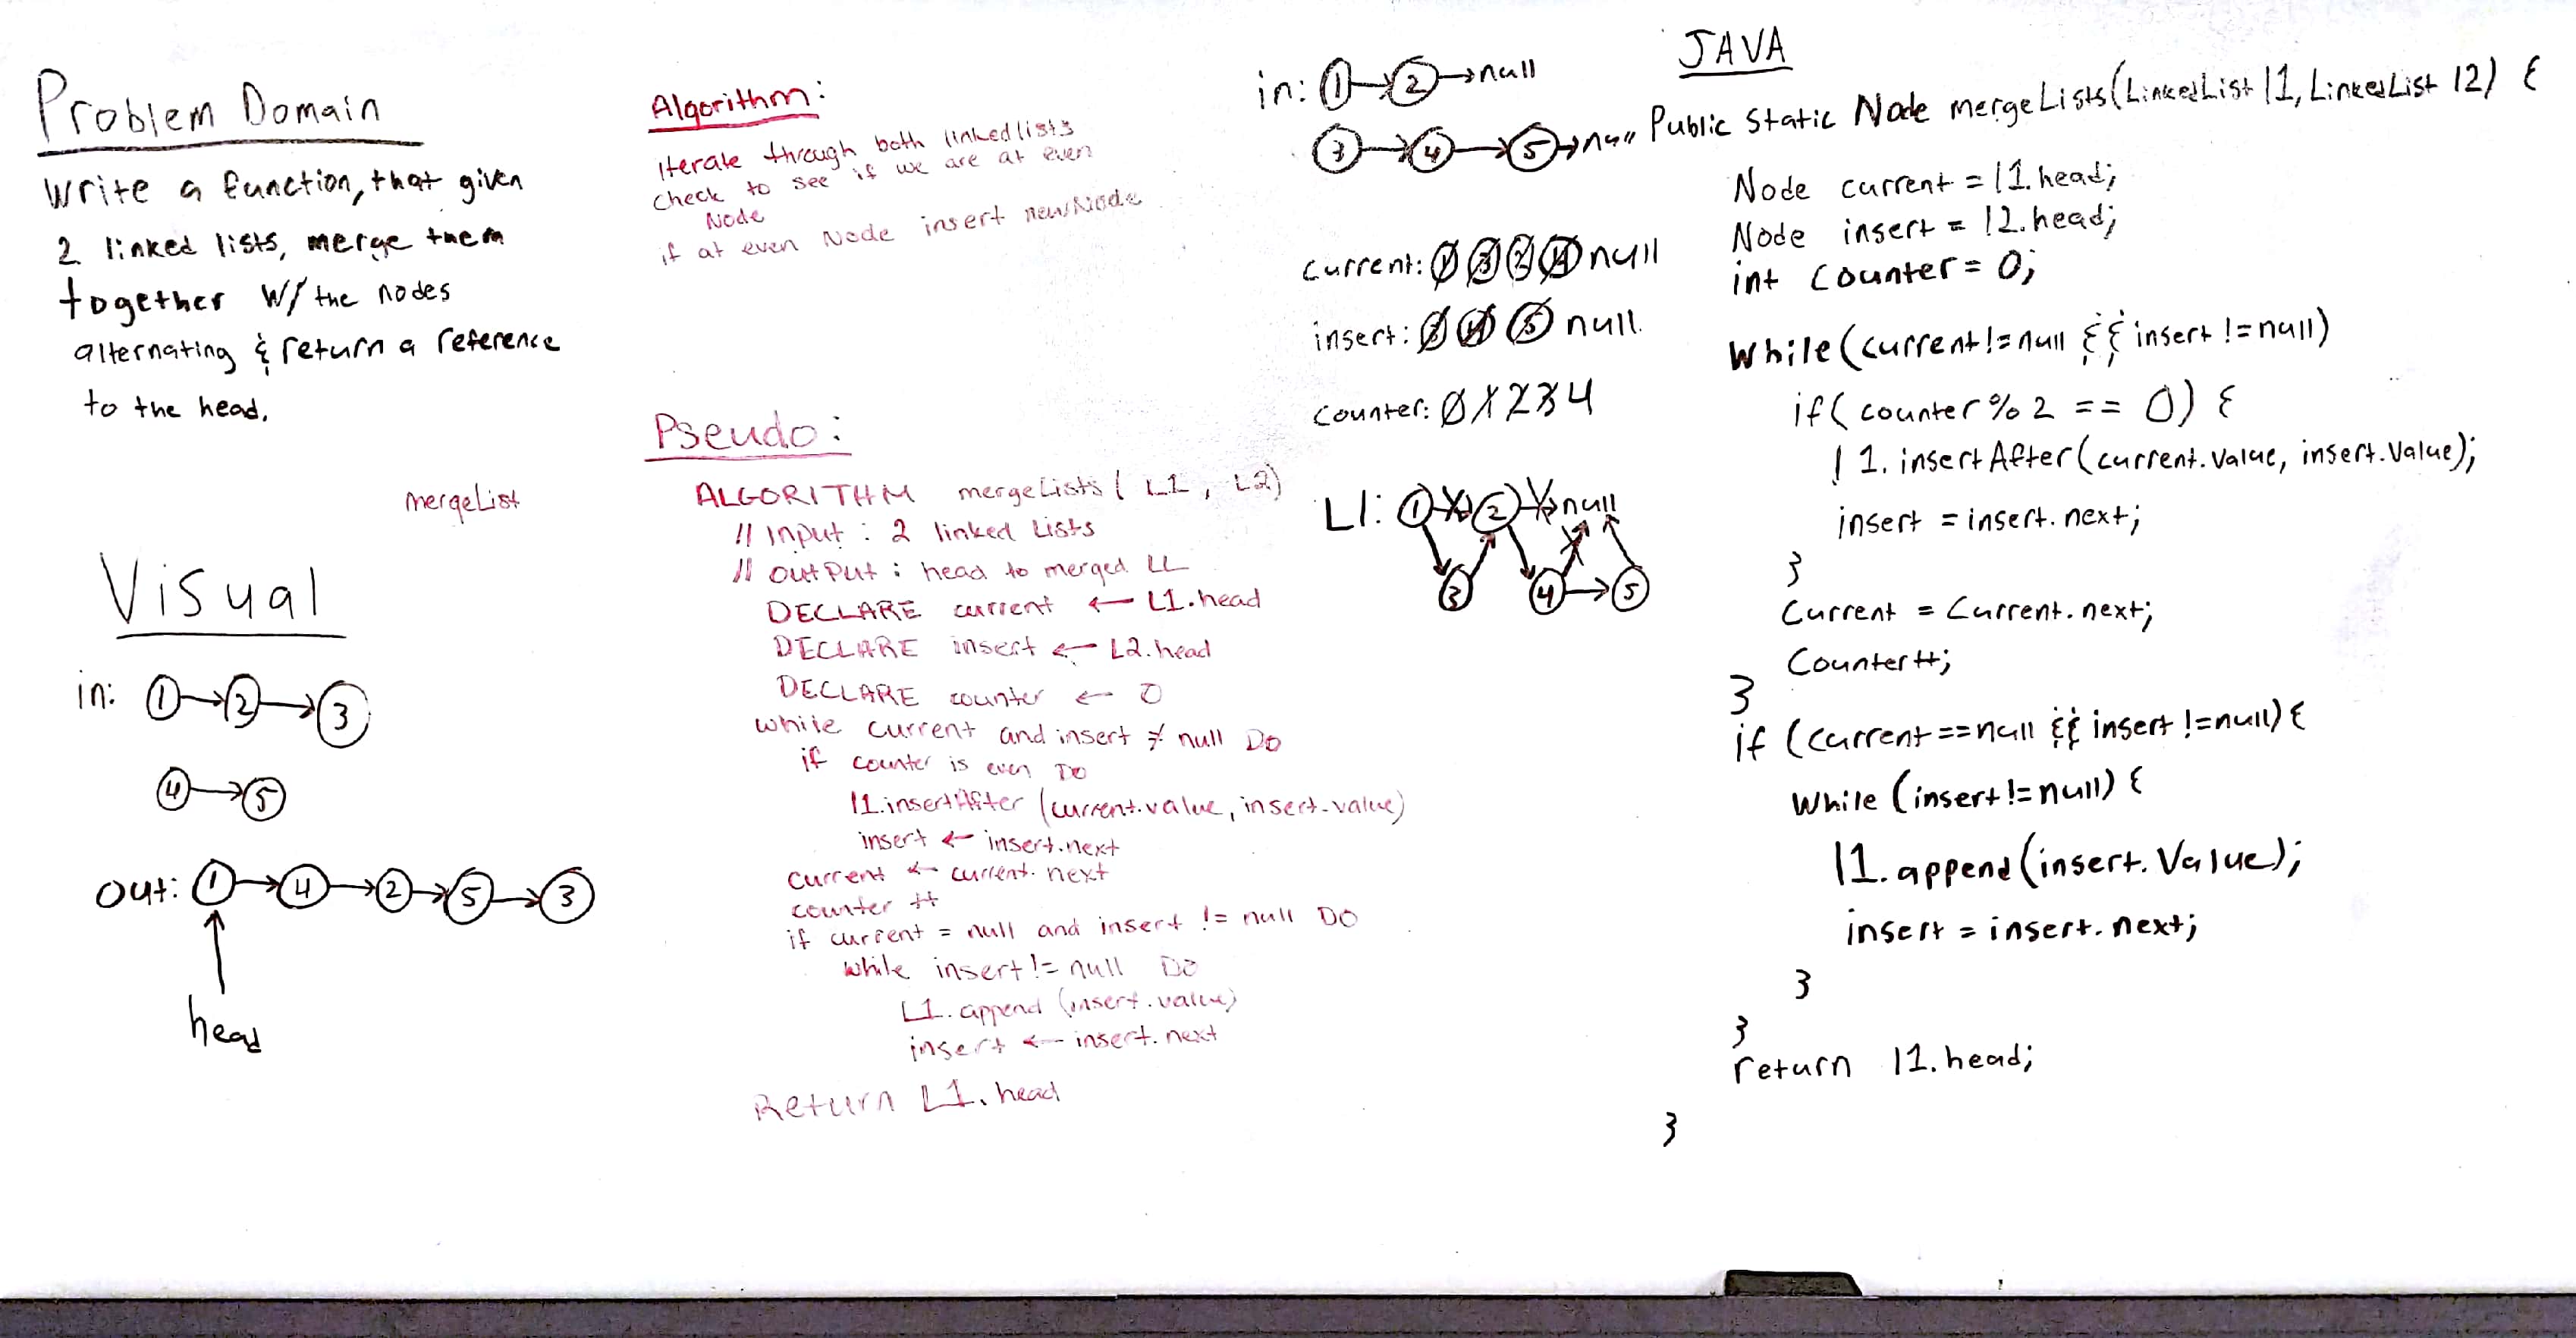 Problem Domain
Write a function, that given
2 linked lists, merge them
together w/ the nodes
alternating & return a reference
to the head.
mergeList
Visual
in: 1 → 2 → 3
4 → 5
out: 1 → 4 → 2 → 5 → 3
head
Algorithm:
Iterate through both linked lists
Check to see if we are at even
Node
if at even Node insert newNode
Pseudo:
ALGORITHM mergeLists ( L1 , L2)
// Input : 2 linked Lists
// OutPut : head to merged LL
DECLARE current ← L1.head
DECLARE insert ← L2.head
DECLARE counter ← 0
while current and insert ≠ null DO
if counter is even DO
l1.insertAfter (current.value, insert.value)
insert ← insert.next
current ← current.next
counter ++
if current = null and insert != null DO
while insert != null DO
L1.append (insert.value)
insert ← insert.next
Return L1.head
in: 1 → 2 → null
3 → 4 → 5 → null
current: 1 3 2 4 null
insert: 3 4 5 null
counter: 0 1 2 3 4
L1: 1 → 2 → null
3 4 → 5
JAVA
Public Static Node mergeLists(LinkedList l1, LinkedList l2) {
Node current = l1.head;
Node insert = l2.head;
int counter = 0;
while(current != null && insert != null)
if( counter % 2 == 0) {
l1.insertAfter(current.value, insert.Value);
insert = insert.next;
}
Current = Current.next;
Counter++;
}
if (current == null && insert != null) {
while (insert != null) {
l1.append(insert.Value);
insert = insert.next;
}
}
return l1.head;
}